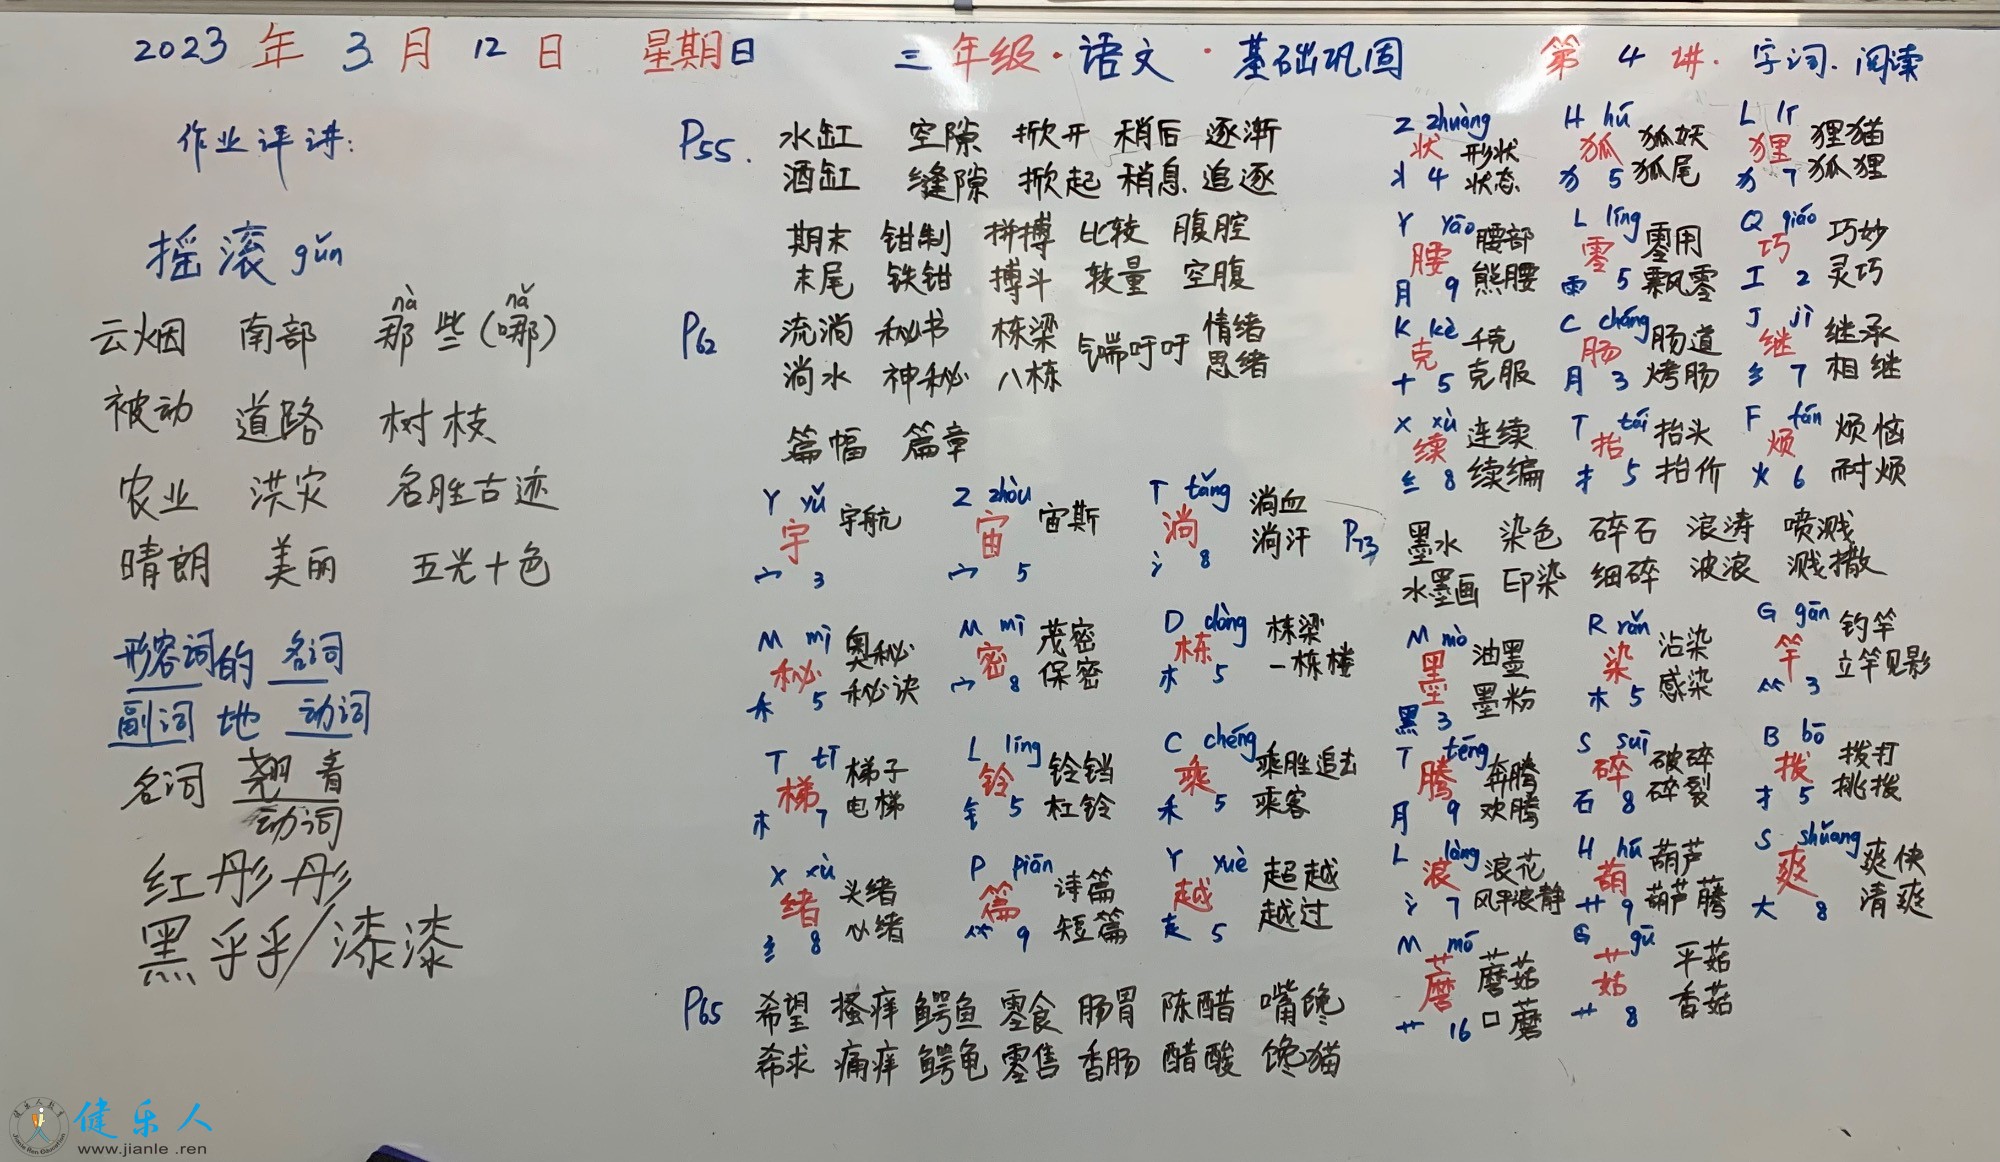 2023 年 3 月 12 日 星期日 三 年级 · 语文 · 基础巩固 第 4 讲. 字词. 阅读
作业评讲:
摇滚 gǔn
nà nǎ
云烟 南部 那些(哪)
被动 道路 树枝
农业 洪灾 名胜古迹
晴朗 美丽 五光十色
形容词的 名词
副词 地 动词
名词 翘音
动词
红彤彤
黑乎乎/漆漆
P55. 水缸 空隙 掀开 稍后 逐渐
酒缸 缝隙 掀起 稍息 追逐
期末 钳制 拼搏 比较 腹腔
末尾 铁钳 搏斗 较量 空腹
P62 流淌 秘书 栋梁 气喘吁吁 情绪
淌水 神秘 八栋 思绪
篇幅 篇章
Y yǔ 宇 宇航 宀 3
Z zhòu 宙 宙斯 宀 5
T tǎng 淌 淌血 淌汗 氵 8
M mì 秘 奥秘 秘诀 禾 5
M mì 密 茂密 保密 宀 8
D dòng 栋 栋梁 一栋楼 木 5
T tī 梯 梯子 电梯 木 7
L líng 铃 铃铛 杠铃 钅 5
C chéng 乘 乘胜追击 乘客 禾 5
X xù 绪 头绪 心绪 纟 8
P piān 篇 诗篇 短篇 ⺮ 9
Y yuè 越 超越 越过 走 5
P65 希望 搔痒 鳄鱼 零食 肠胃 陈醋 嘴馋
希求 痛痒 鳄龟 零售 香肠 醋酸 馋猫
Z zhuàng 状 形状 状态 丬 4
H hú 狐 狐妖 狐尾 犭 5
L lí 狸 狸猫 狐狸 犭 7
Y yāo 腰 腰部 熊腰 月 9
L líng 零 零用 飘零 雨 5
Q qiǎo 巧 巧妙 灵巧 工 2
K kè 克 千克 克服 十 5
C cháng 肠 肠道 烤肠 月 3
J jì 继 继承 相继 纟 7
X xù 续 连续 续编 纟 8
T tái 抬 抬头 抬价 扌 5
F fán 烦 烦恼 耐烦 火 6
P73 墨水 染色 碎石 浪涛 喷溅
水墨画 印染 细碎 波浪 溅撒
M mò 墨 油墨 墨粉 黑 3
R rǎn 染 沾染 感染 木 5
G gān 竿 钓竿 立竿见影 ⺮ 3
T téng 腾 奔腾 欢腾 月 9
S suì 碎 破碎 碎裂 石 8
B bō 拨 拨打 挑拨 扌 5
L làng 浪 浪花 风平浪静 氵 7
H hú 葫 葫芦 葫芦藤 艹 9
S shuǎng 爽 爽快 清爽 大 8
M mó 蘑 蘑菇 口蘑 艹 16
G gū 菇 平菇 香菇 艹 8
健乐人
www.jianle.ren